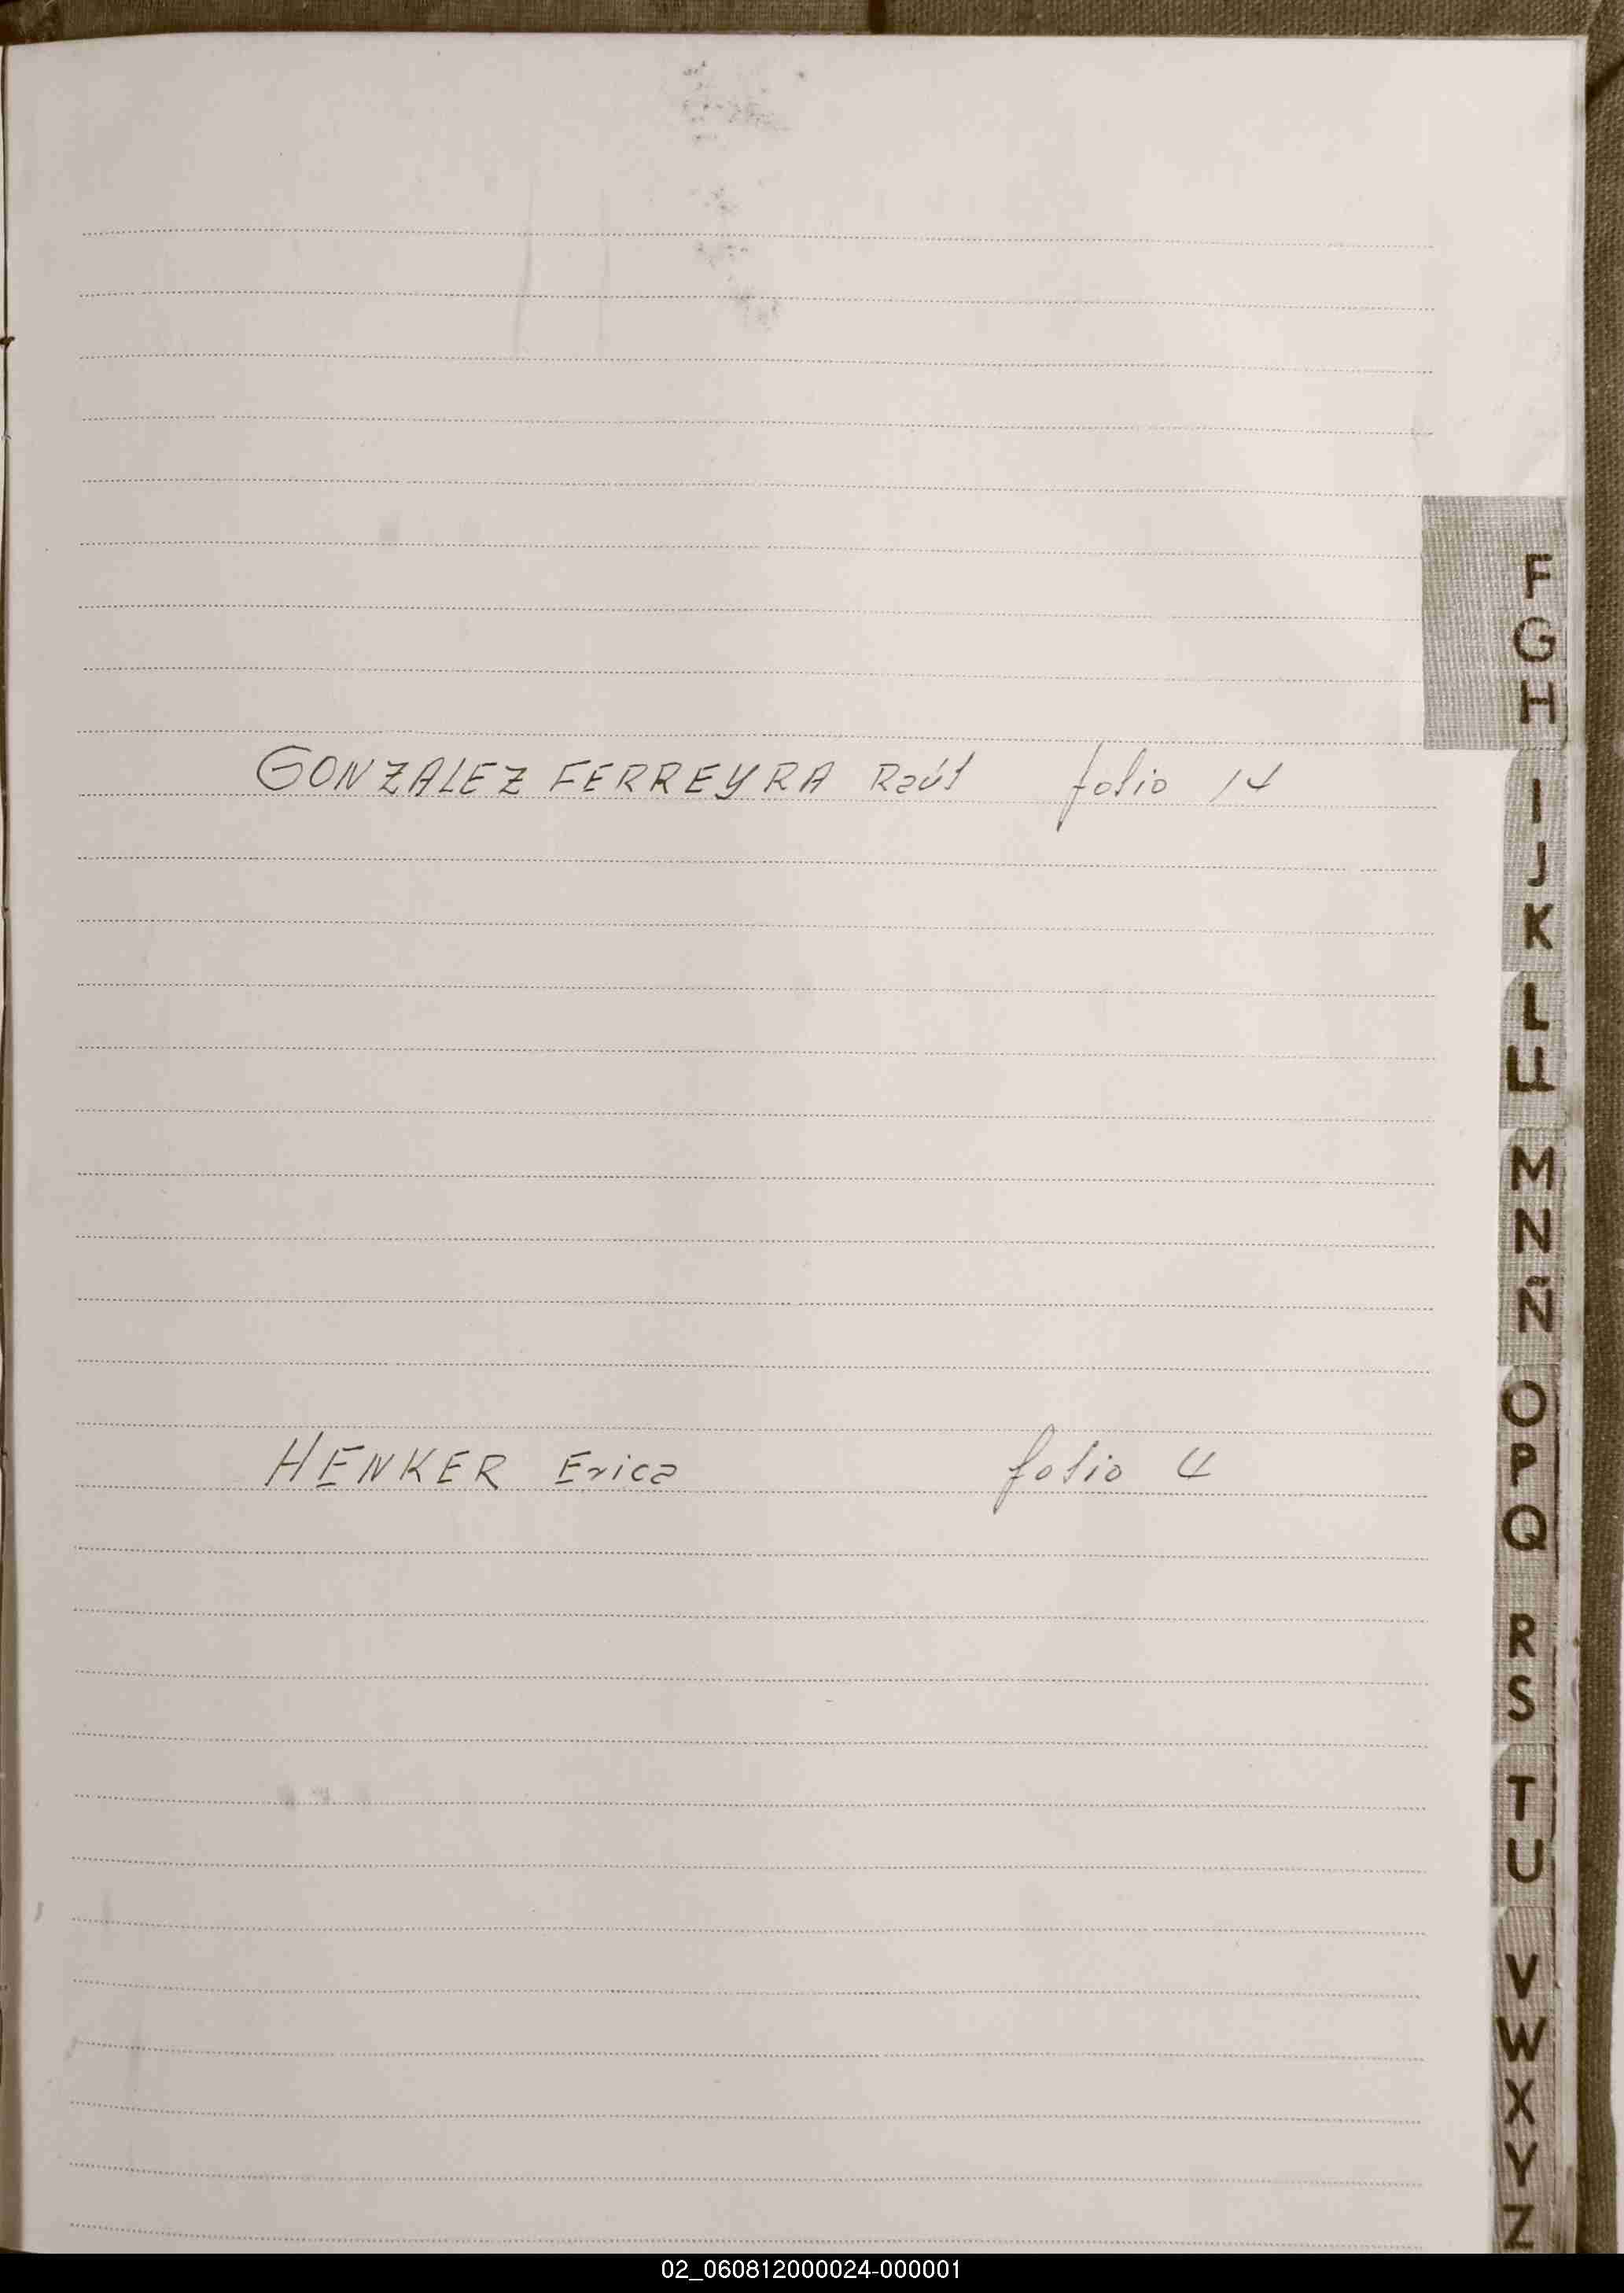 F
G
H
GONZALEZ FERREYRA Raúl folio 14
I
J
K
L
LL
M
N
Ñ
O
P
Q
HENKER Erica folio 4
R
S
T
U
V
W
X
Y
Z
02_060812000024-000001